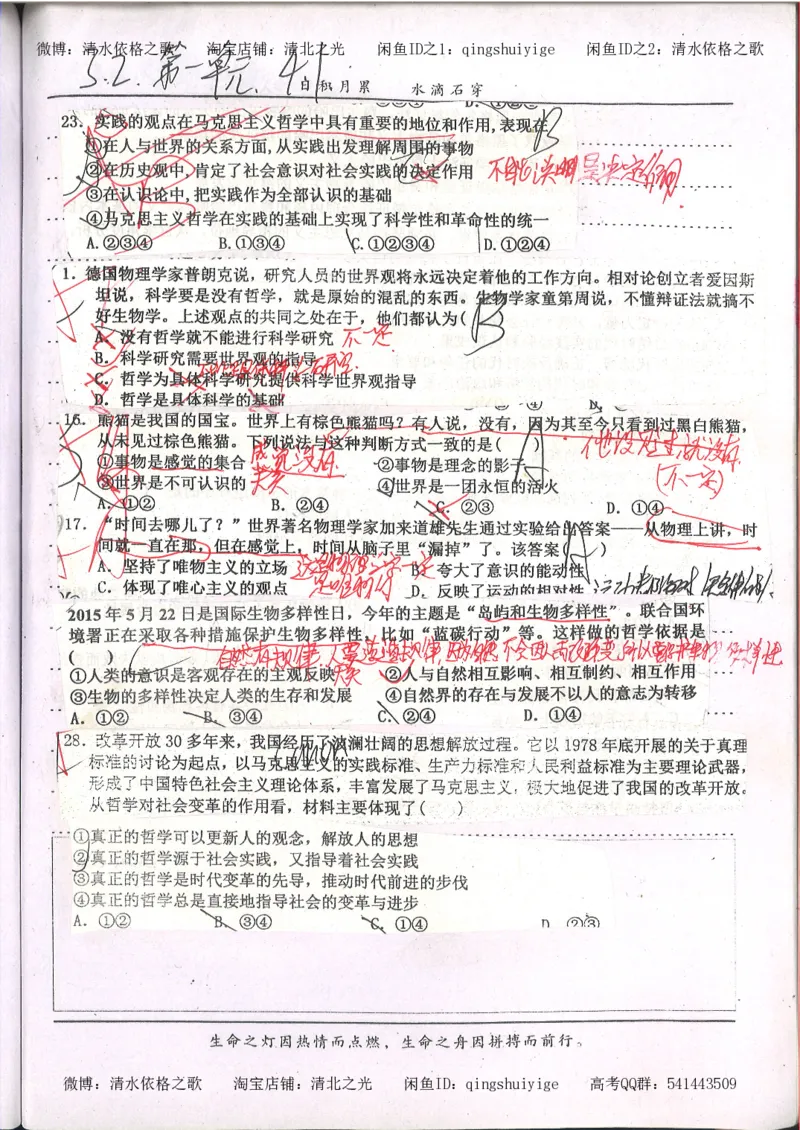 微博：清水依格之歌 淘宝店铺：清北之光 闲鱼ID之1：qingshuiyige 闲鱼ID之2：清水依格之歌
5.2. 第一单元. 4.1
日积月累 水滴石穿
23．实践的观点在马克思主义哲学中具有重要的地位和作用,表现在 B
①在人与世界的关系方面,从实践出发理解周围的事物
②在历史观中,肯定了社会意识对社会实践的决定作用 不能说明是决定作用.
③在认识论中,把实践作为全部认识的基础
④马克思主义哲学在实践的基础上实现了科学性和革命性的统一
A.②③④ B.①③④ C.①②③④ D.①②④
1．德国物理学家普朗克说，研究人员的世界观将永远决定着他的工作方向。相对论创立者爱因斯
坦说，科学要是没有哲学，就是原始的混乱的东西。生物学家童第周说，不懂辩证法就搞不
好生物学。上述观点的共同之处在于，他们都认为( B
A．没有哲学就不能进行科学研究 不一定
B．科学研究需要世界观的指导
C．哲学为具体科学研究提供科学世界观指导
D．哲学是具体科学的基础
16．熊猫是我国的国宝。世界上有棕色熊猫吗？有人说，没有，因为其至今只看到过黑白熊猫，
从未见过棕色熊猫。下列说法与这种判断方式一致的是( A )
①事物是感觉的集合 ②事物是理念的影子
③世界是不可认识的 ④世界是一团永恒的活火
(不一定)
A．①② B．②④ C．②③ D．①④
17．“时间去哪儿了？”世界著名物理学家加来道雄先生通过实验给出答案——从物理上讲，时
间就一直在那，但在感觉上，时间从脑子里“漏掉”了。该答案( A )
A．坚持了唯物主义的立场 B．夸大了意识的能动性
C．体现了唯心主义的观点 D．反映了运动的相对性
2015年5月22日是国际生物多样性日，今年的主题是“岛屿和生物多样性”。联合国环
境署正在采取各种措施保护生物多样性，比如“蓝碳行动”等。这样做的哲学依据是
( )
①人类的意识是客观存在的主观反映 ②人与自然相互影响、相互制约、相互作用
③生物的多样性决定人类的生存和发展 ④自然界的存在与发展不以人的意志为转移
A．①② B．③④ C．②④ D．①④
28．改革开放30多年来，我国经历了波澜壮阔的思想解放过程。它以1978年底开展的关于真理
标准的讨论为起点，以马克思主义的实践标准、生产力标准和人民利益标准为主要理论武器，
形成了中国特色社会主义理论体系，丰富发展了马克思主义，极大地促进了我国的改革开放。
从哲学对社会变革的作用看，材料主要体现了( )
①真正的哲学可以更新人的观念，解放人的思想
②真正的哲学源于社会实践，又指导着社会实践
③真正的哲学是时代变革的先导，推动时代前进的步伐
④真正的哲学总是直接地指导社会的变革与进步
A．①② B．③④ C．①④ D．②③
生命之灯因热情而点燃，生命之舟因拼搏而前行。
微博：清水依格之歌 淘宝店铺：清北之光 闲鱼ID：qingshuiyige 高考QQ群：541443509